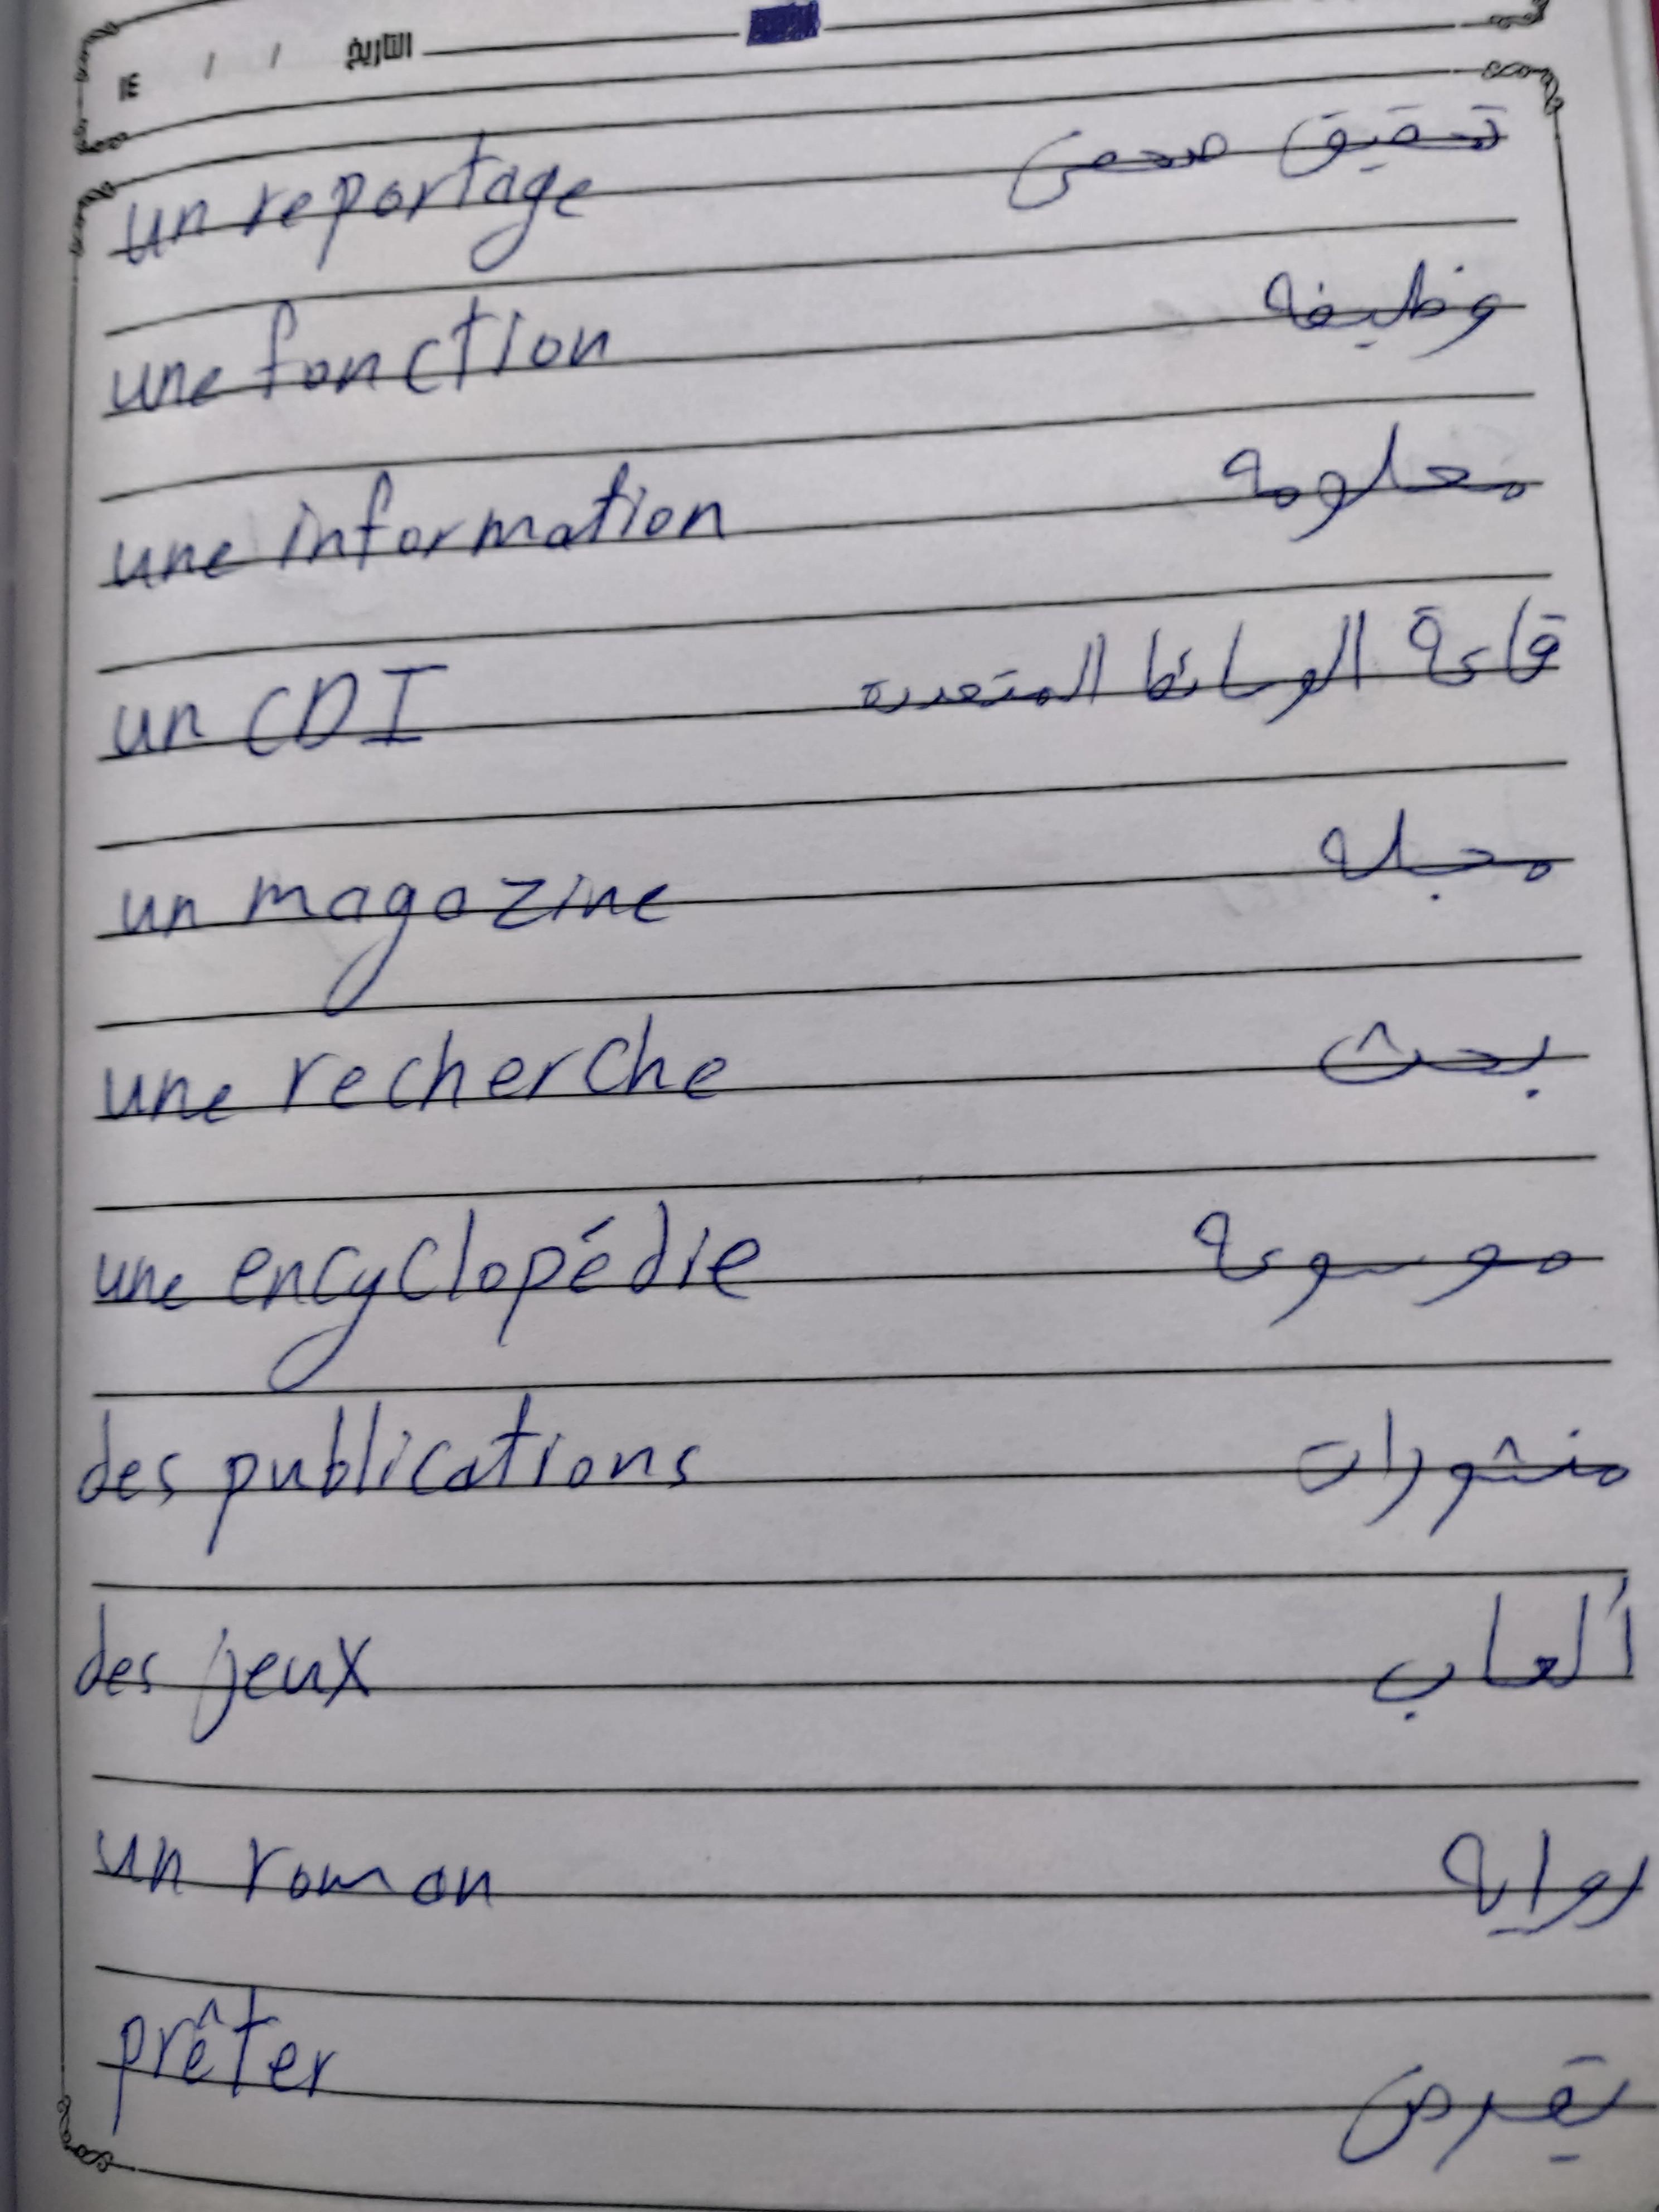 التاريخ / / ١٤
un reportage تحقيق صحفى
une fonction وظيفه
une information معلومه
un CDI قاعة الوسائط المتعدده
un magazine مجله
une recherche بحث
une encyclopédie موسوعه
des publications منشورات
des jeux ألعاب
un roman روايه
prêter يقرض